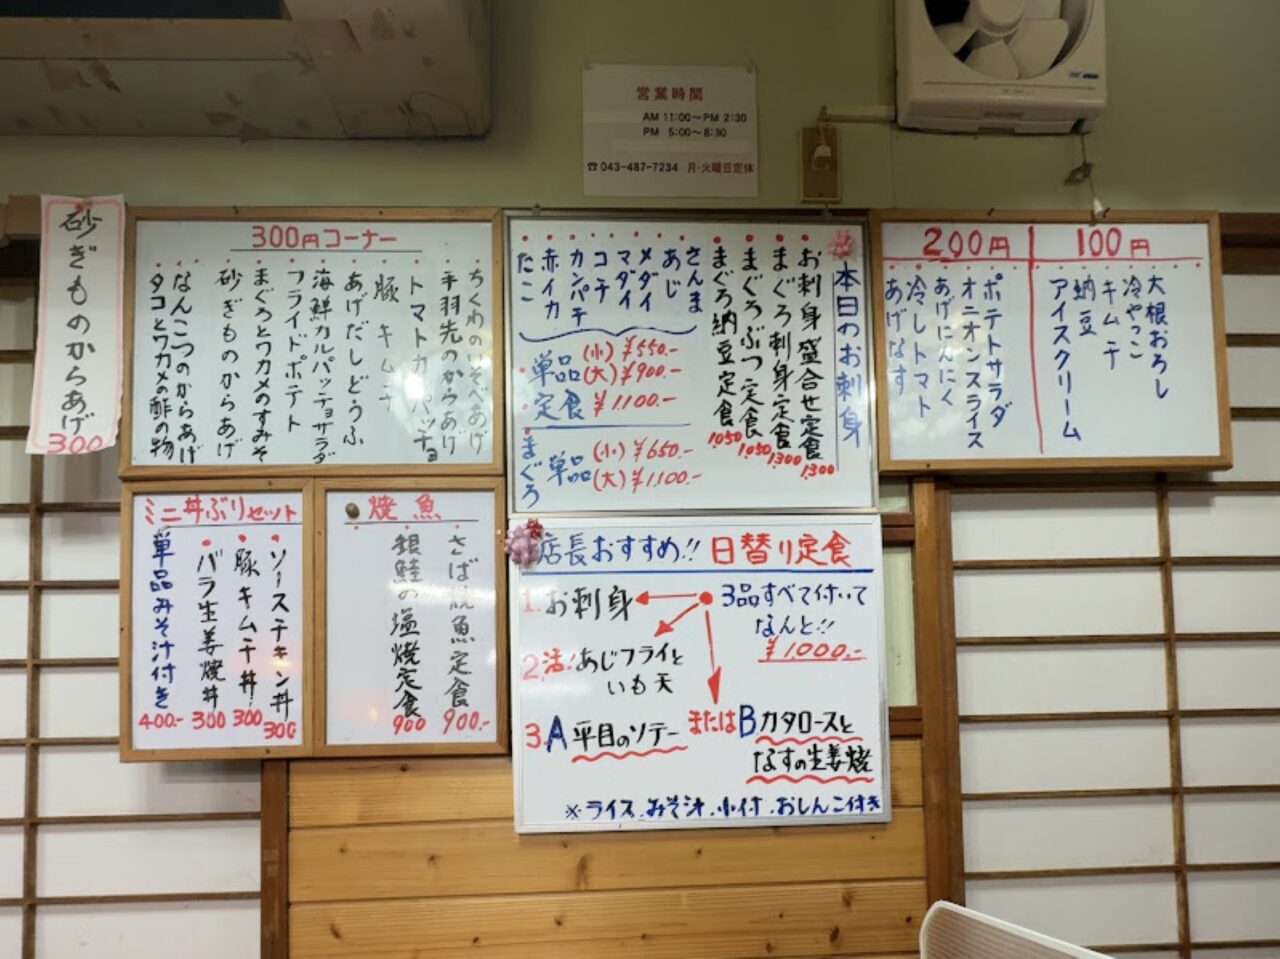 営業時間
AM 11:00～PM 2:30
PM 5:00～8:30
☎043-487-7234 月・火曜日定休
砂ぎものからあげ
300
300円コーナー
ちくわのいそべあげ
手羽先のからあげ
トマトカルパッチョ
豚キムチ
あげだしどうふ
海鮮カルパッチョサラダ
フライドポテト
まぐろとワカメのすみそ
砂ぎものからあげ
なんこつのからあげ
タコとワカメの酢の物
本日のお刺身
お刺身盛合せ定食 1,300
まぐろ刺身定食 1,300
まぐろぶつ定食 1,050
まぐろ納豆定食 1,050
さんま
あじ
メダイ
マダイ
コチ
カンパチ
赤イカ
たこ
単品 (小) ¥550.-
(大) ¥900.-
定食 ¥1,100.-
まぐろ 単品 (小) ¥650.-
(大) ¥1,100.-
100円
大根おろし
冷やっこ
キムチ
納豆
アイスクリーム
200円
ポテトサラダ
オニオンスライス
あげにんにく
冷しトマト
あげなす
ミニ丼ぶりセット
ソースチキン丼 300
豚キムチ丼 300
バラ生姜焼丼 300
単品みそ汁付き 400.-
焼魚
さば焼魚定食 900.-
銀鮭の塩焼定食 900
店長おすすめ!! 日替り定食
1. お刺身
3品すべて付いて
なんと!!
¥1,000.-
2. 活!あじフライと
いも天
3. A 平目のソテー または B カタロースと
なすの生姜焼
※ライス.みそ汁.小付.おしんこ付き